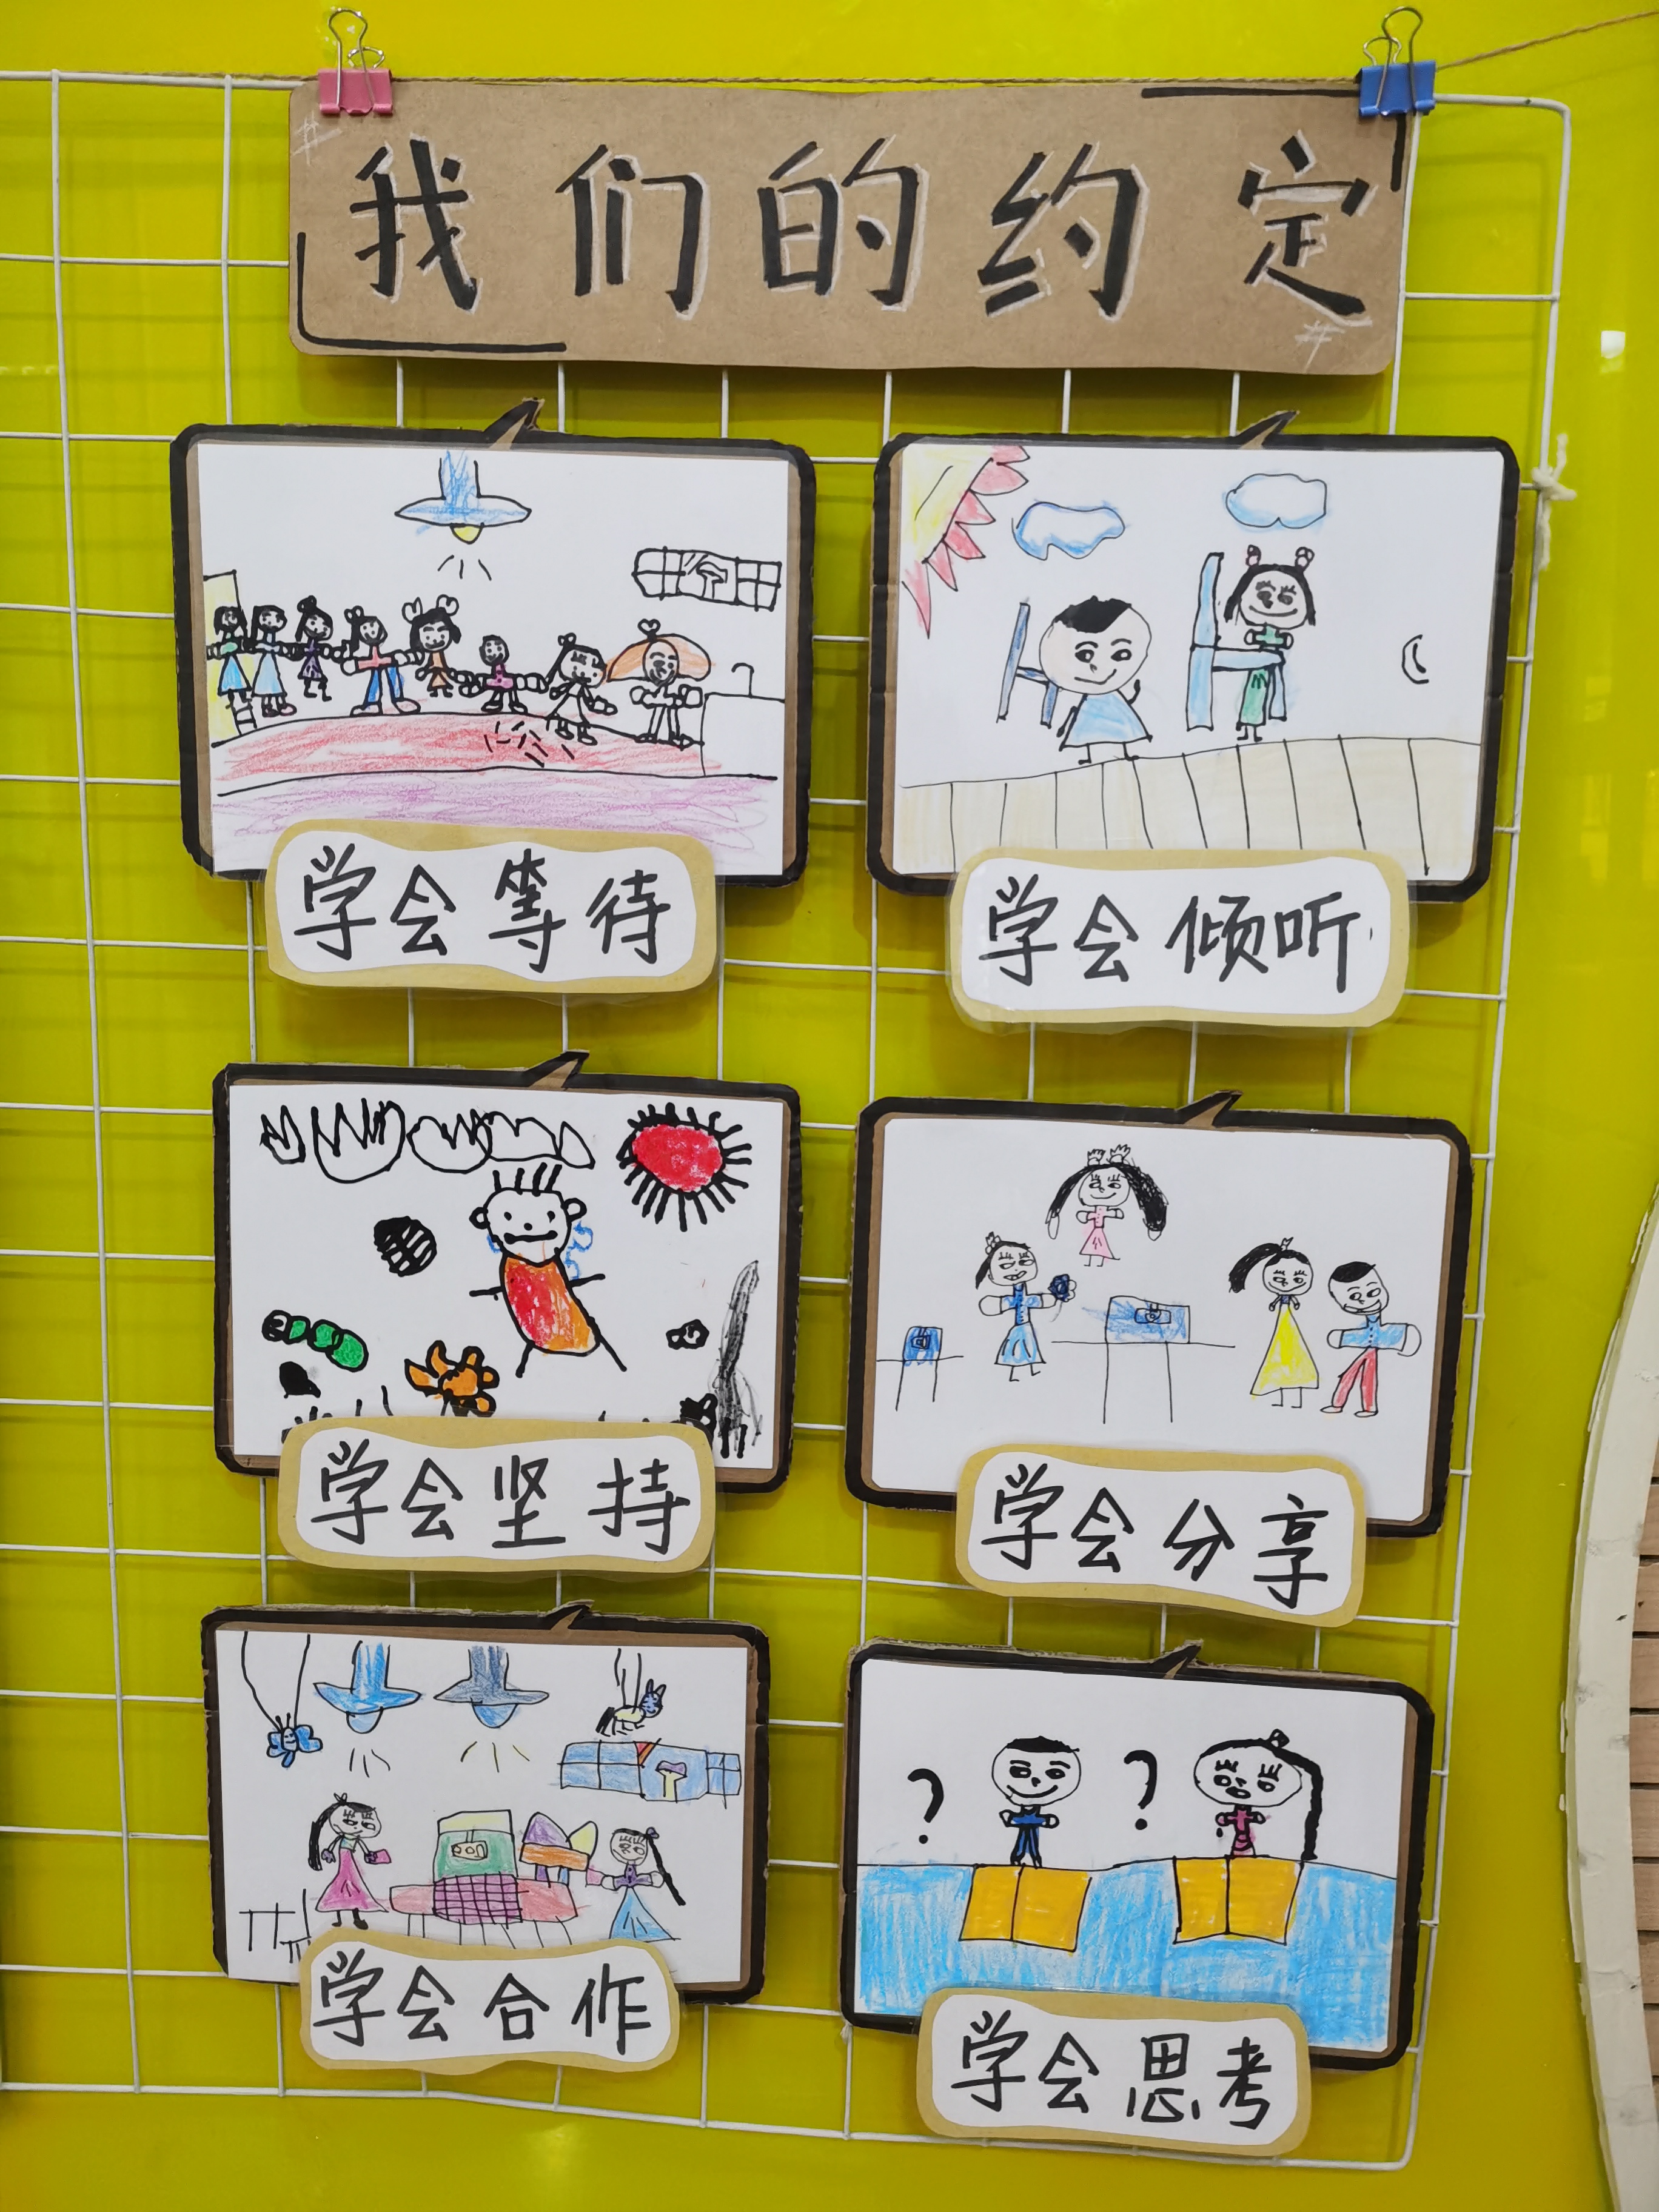 我们的约定
学会等待
学会倾听
学会坚持
学会分享
学会合作
学会思考